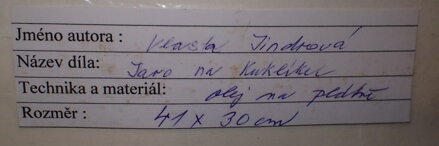 Jméno autora : Vlasta Jindrová
Název díla: Jaro na Kukliku
Technika a materiál: olej na plátně
Rozměr : 41 x 30 cm